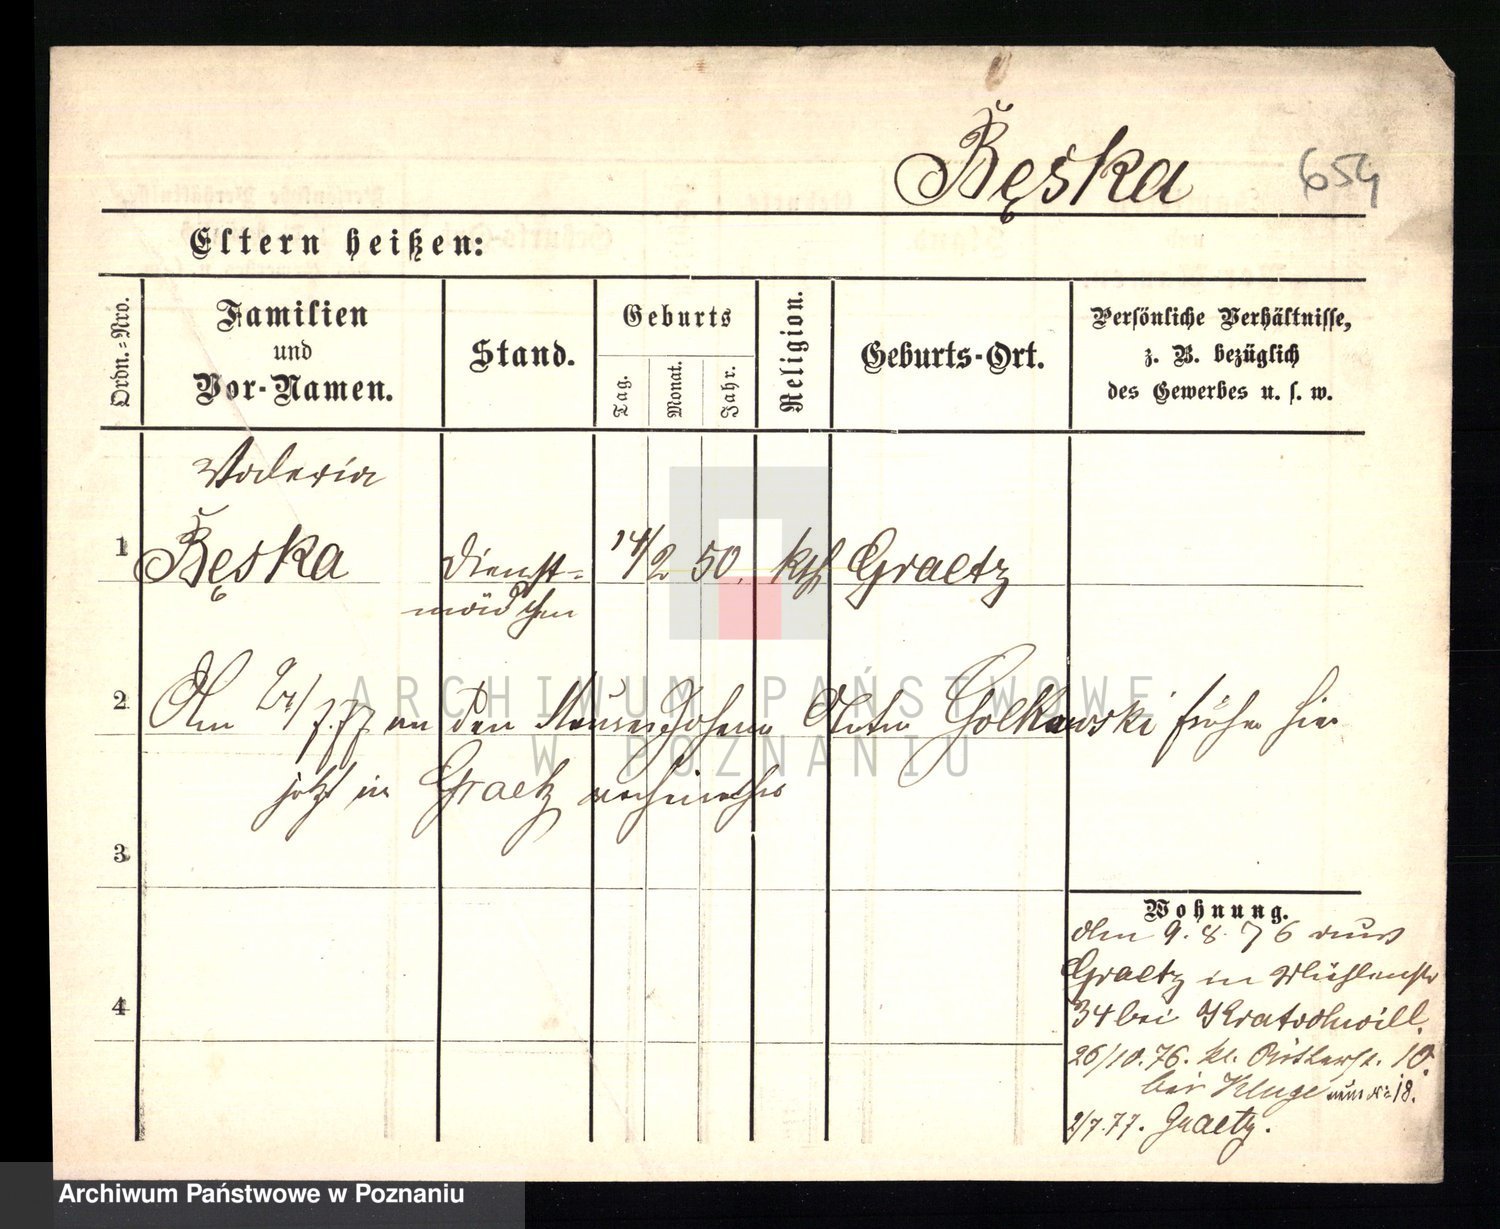 Bęska 654
Eltern heißen:
Ordn.-Nro.
Familien
und
Vor-Namen.
Stand.
Geburts
Tag.
Monat.
Jahr.
Religion.
Geburts-Ort.
Persönliche Verhältnisse,
z. B. bezüglich
des Gewerbes u. s. w.
Valeria
1 Bęska Dienst- 14/2 50. kth Graetz
mädchen
2 Am 7.77 an den Maurer Johann Anton Golkowski früher hier
jetzt in Graetz verheirathet
3
4
Wohnung.
Am 9.8.76 aus
Graetz in Mühlenstr
34 bei Kratochwill.
26/10.76. kl. Ritterst. 10.
bei Kluge No 18.
2/7.77. Graetz.
ARCHIWUM PAŃSTWOWE
W POZNANIU
Archiwum Państwowe w Poznaniu